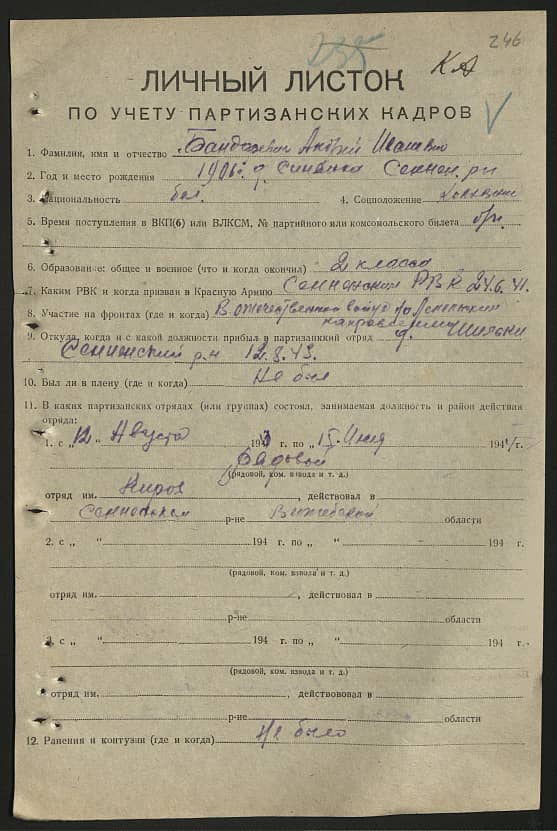 246
235
КА
ЛИЧНЫЙ ЛИСТОК
ПО УЧЕТУ ПАРТИЗАНСКИХ КАДРОВ
1. Фамилия, имя и отчество Андрей
2. Год и место рождения 1906 г. д. Сеннен. р-н
3. Национальность бел. 4. Соцположение
5. Время поступления в ВКП(б) или ВЛКСМ, № партийного или комсомольского билета б/п
6. Образование: общее и военное (что и когда окончил) 2 класса
7. Каким РВК и когда призван в Красную Армию Сенненским РВК 24.6.41.
8. Участие на фронтах (где и когда) В отечественной войне по Лепельским
направлениям
9. Откуда, когда и с какой должности прибыл в партизанский отряд д.
Сенненский р-н 12.8.43.
10. Был ли в плену (где и когда) Не был
11. В каких партизанских отрядах (или группах) состоял, занимаемая должность и район действия
отряда:
1. с „12 Августа 1943 г. по „15 Июня 1944 г.
Рядовой
(рядовой, ком. взвода и т. д.)
отряд им. Киров , действовал в
Сенненском р-не Витебской области
2. с „ “ 194 г. по „ “ 194 г.
(рядовой, ком. взвода и т. д.)
отряд им. , действовал в
р-не области
3. с „ “ 194 г. по „ “ 194 г.
(рядовой, ком. взвода и т. д.)
отряд им. , действововал в
р-не области
12. Ранения и контузии (где и когда) Не было